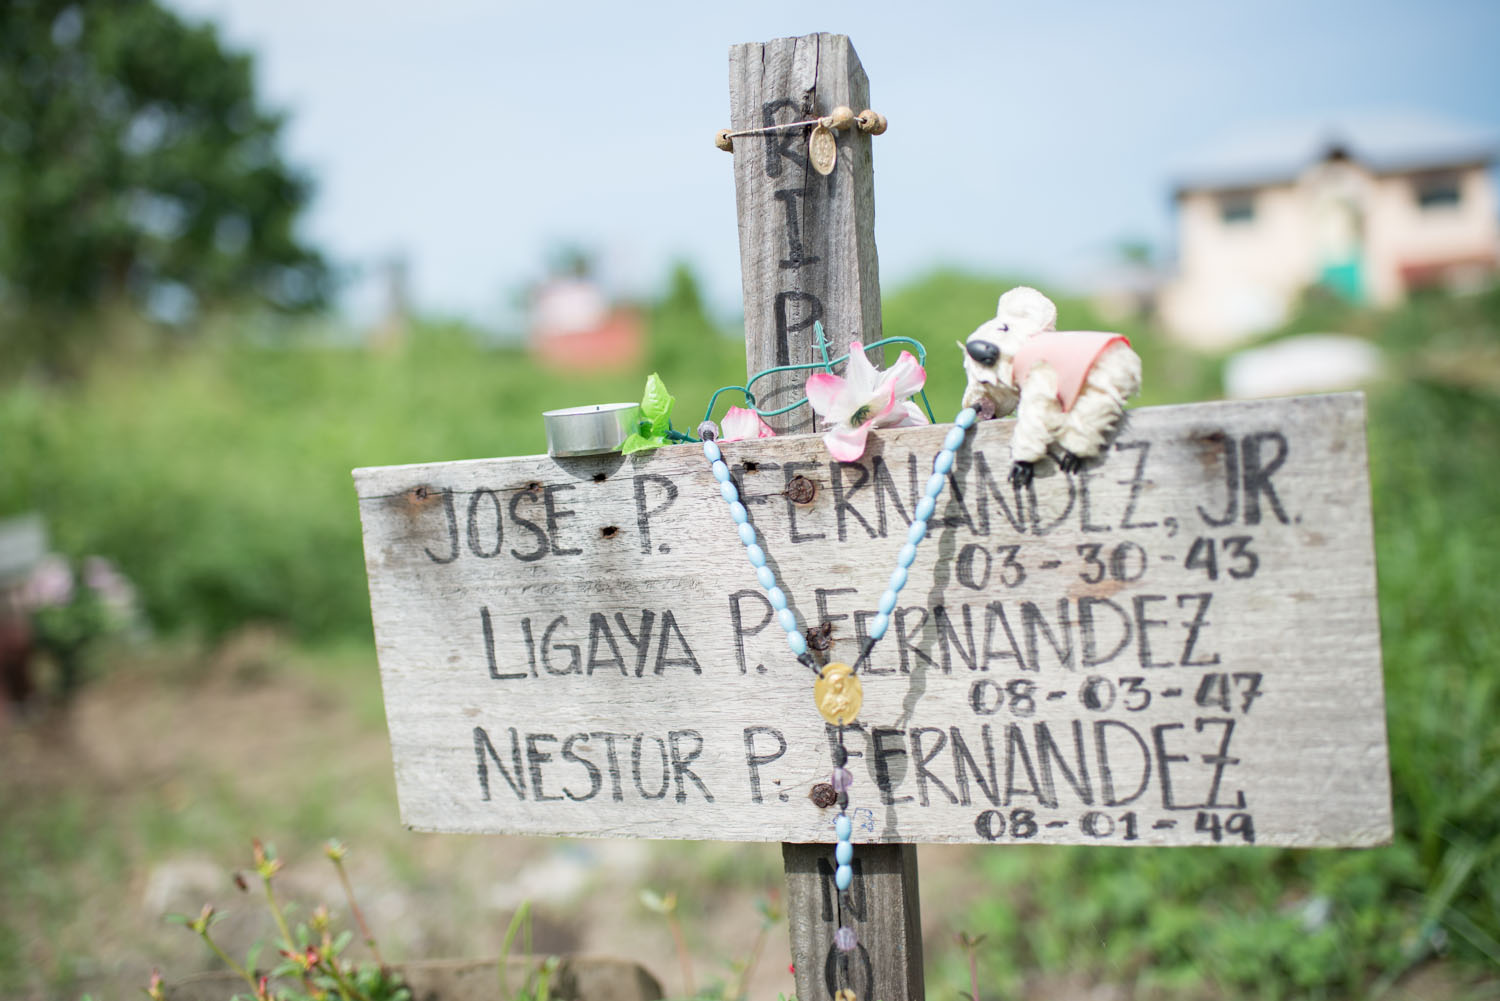 RIP
JOSE P. FERNANDEZ, JR.
03-30-43
LIGAYA P. FERNANDEZ
08-03-47
NESTOR P. FERNANDEZ
08-01-49